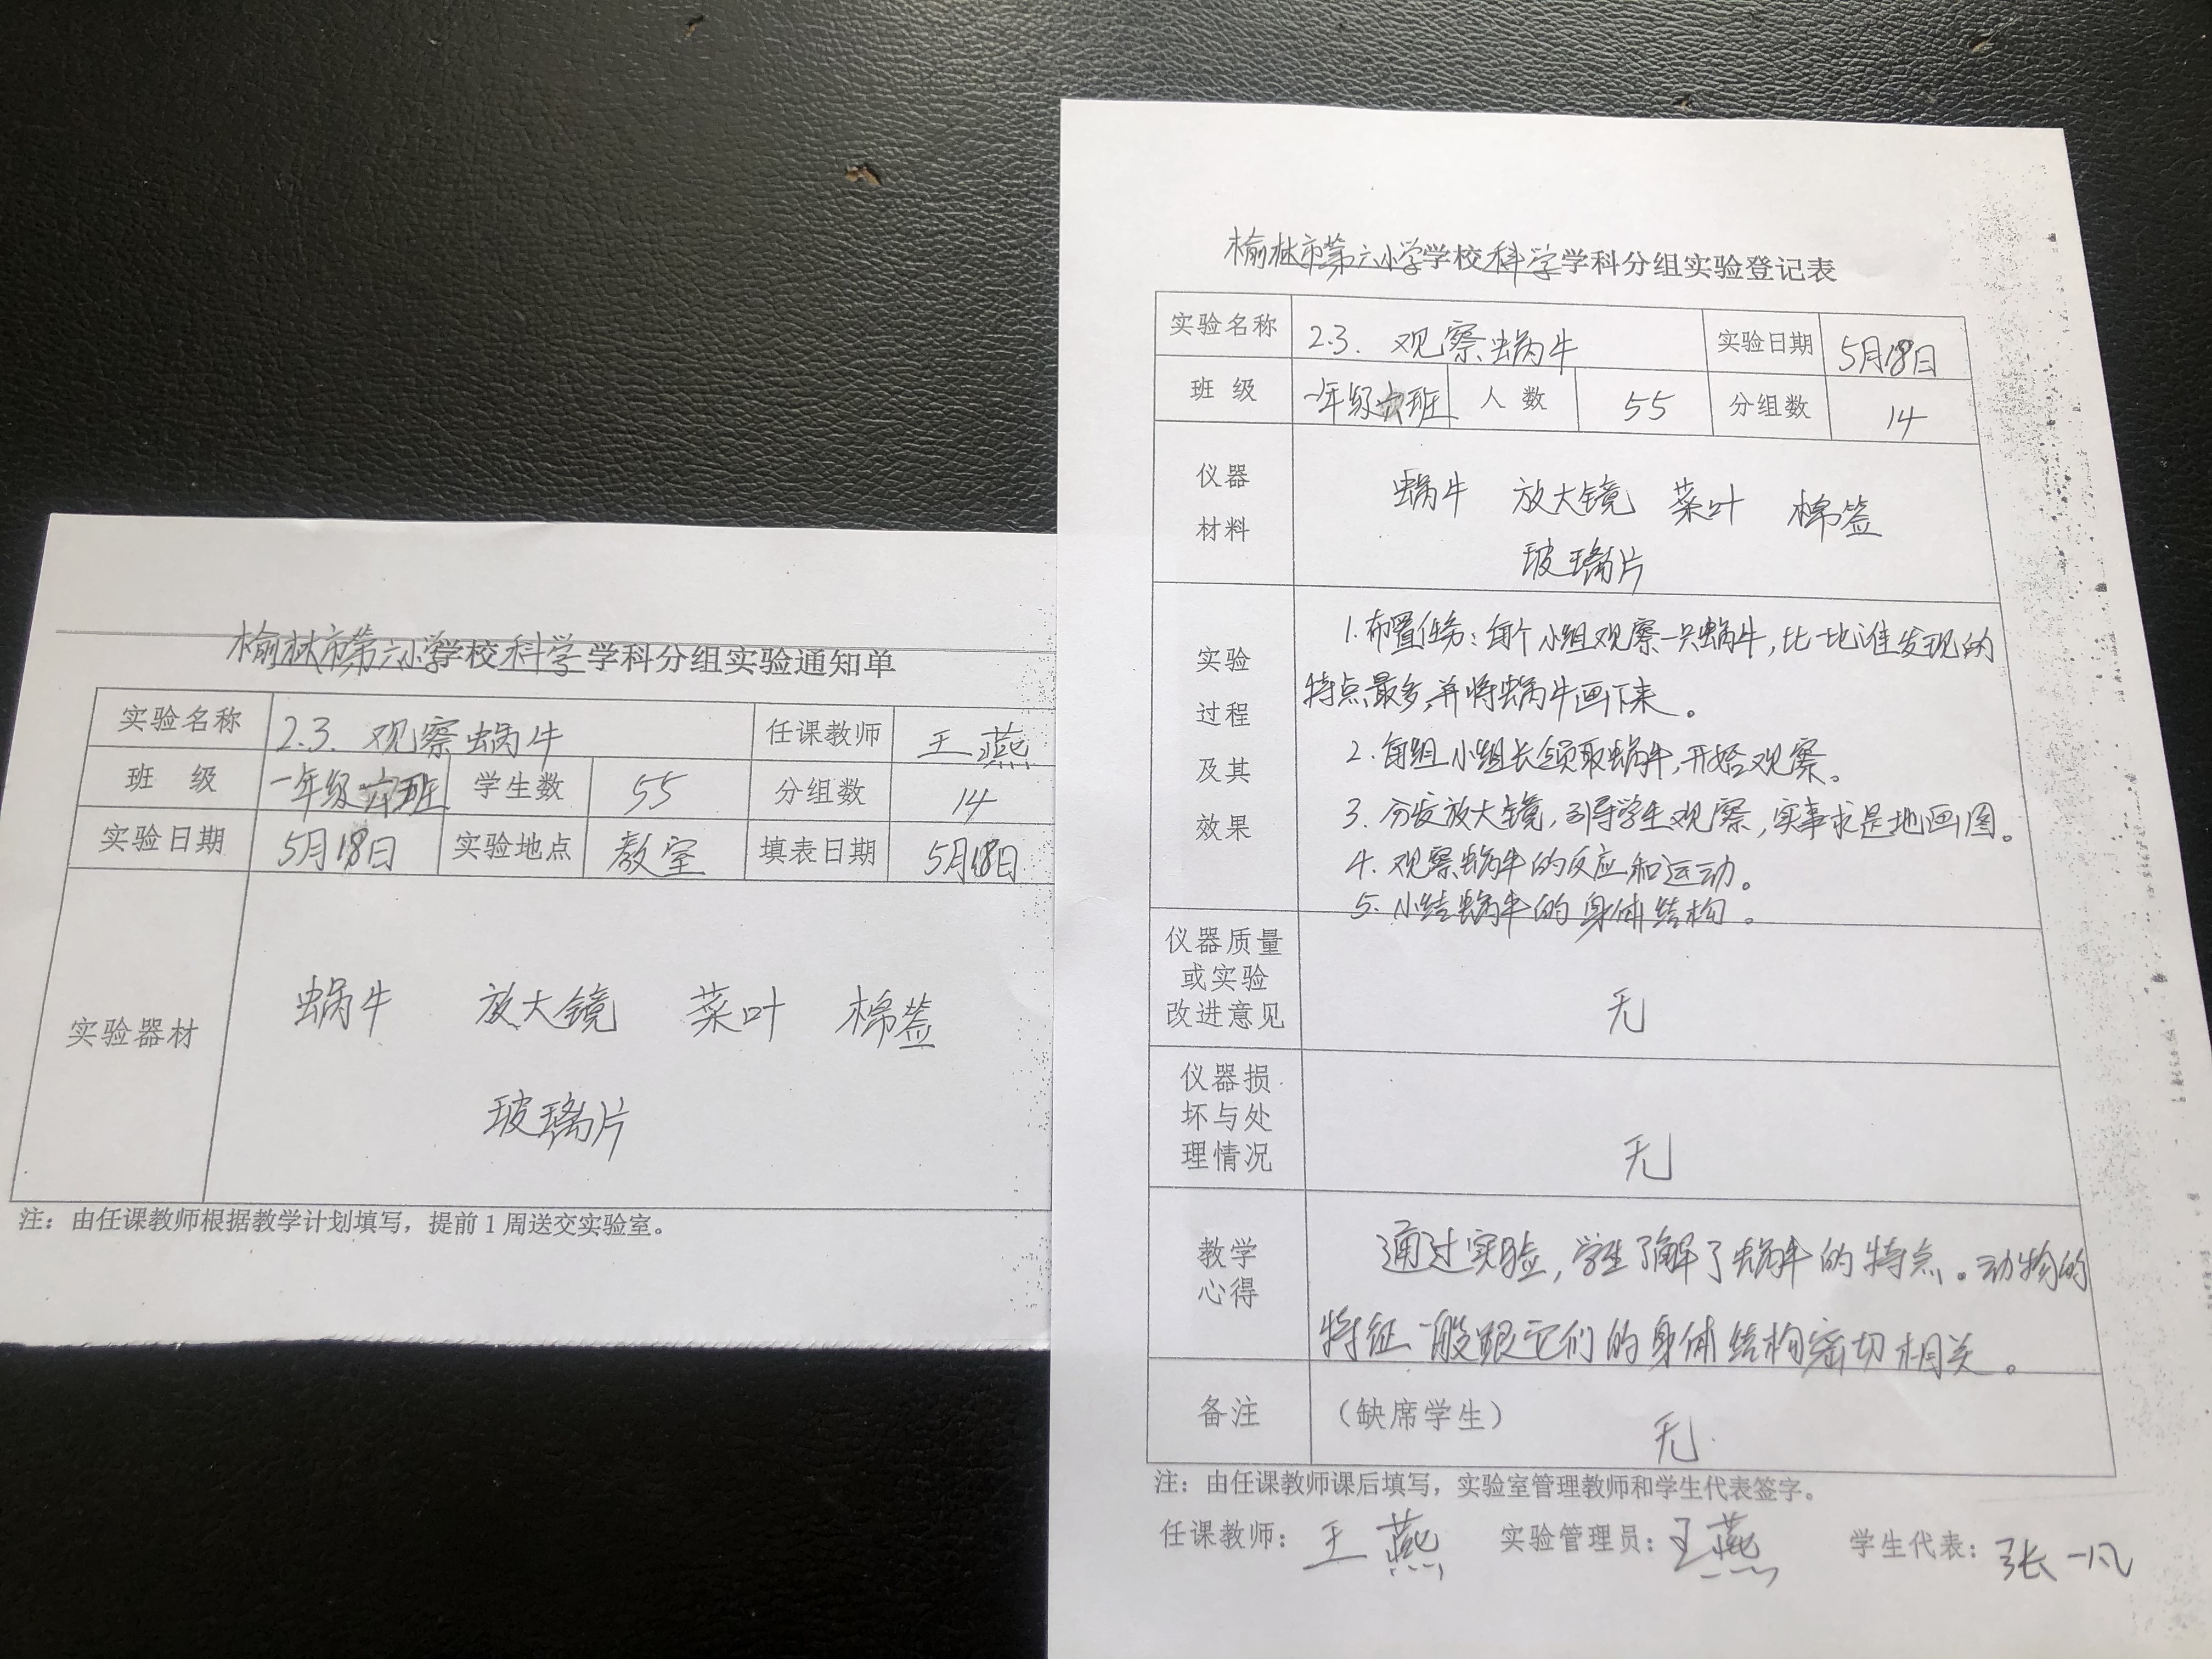 榆林市第六小学学校科学学科分组实验通知单
实验名称 2.3. 观察蜗牛 任课教师 王燕
班 级 一年级六班 学生数 55 分组数 14
实验日期 5月18日 实验地点 教室 填表日期 5月18日
实验器材 蜗牛 放大镜 菜叶 棉签
玻璃片
注：由任课教师根据教学计划填写，提前1周送交实验室。
榆林市第六小学学校科学学科分组实验登记表
实验名称 2.3. 观察蜗牛 实验日期 5月18日
班 级 一年级六班 人 数 55 分组数 14
仪器
材料
蜗牛 放大镜 菜叶 棉签
玻璃片
实验
过程
及其
效果
1.布置任务：每个小组观察一只蜗牛，比一比谁发现的
特点最多，并将蜗牛画下来。
2.每组小组长领取蜗牛，开始观察。
3.分发放大镜，引导学生观察，实事求是地画图。
4.观察蜗牛的反应和运动。
5.小结蜗牛的身体结构。
仪器质量
或实验
改进意见
无
仪器损
坏与处
理情况
无
教学
心得
通过实验，学生了解了蜗牛的特点。动物的
特征一般跟它们的身体结构密切相关。
备注 （缺席学生） 无.
注：由任课教师课后填写，实验室管理教师和学生代表签字。
任课教师：王燕 实验管理员：王燕 学生代表：张一凡